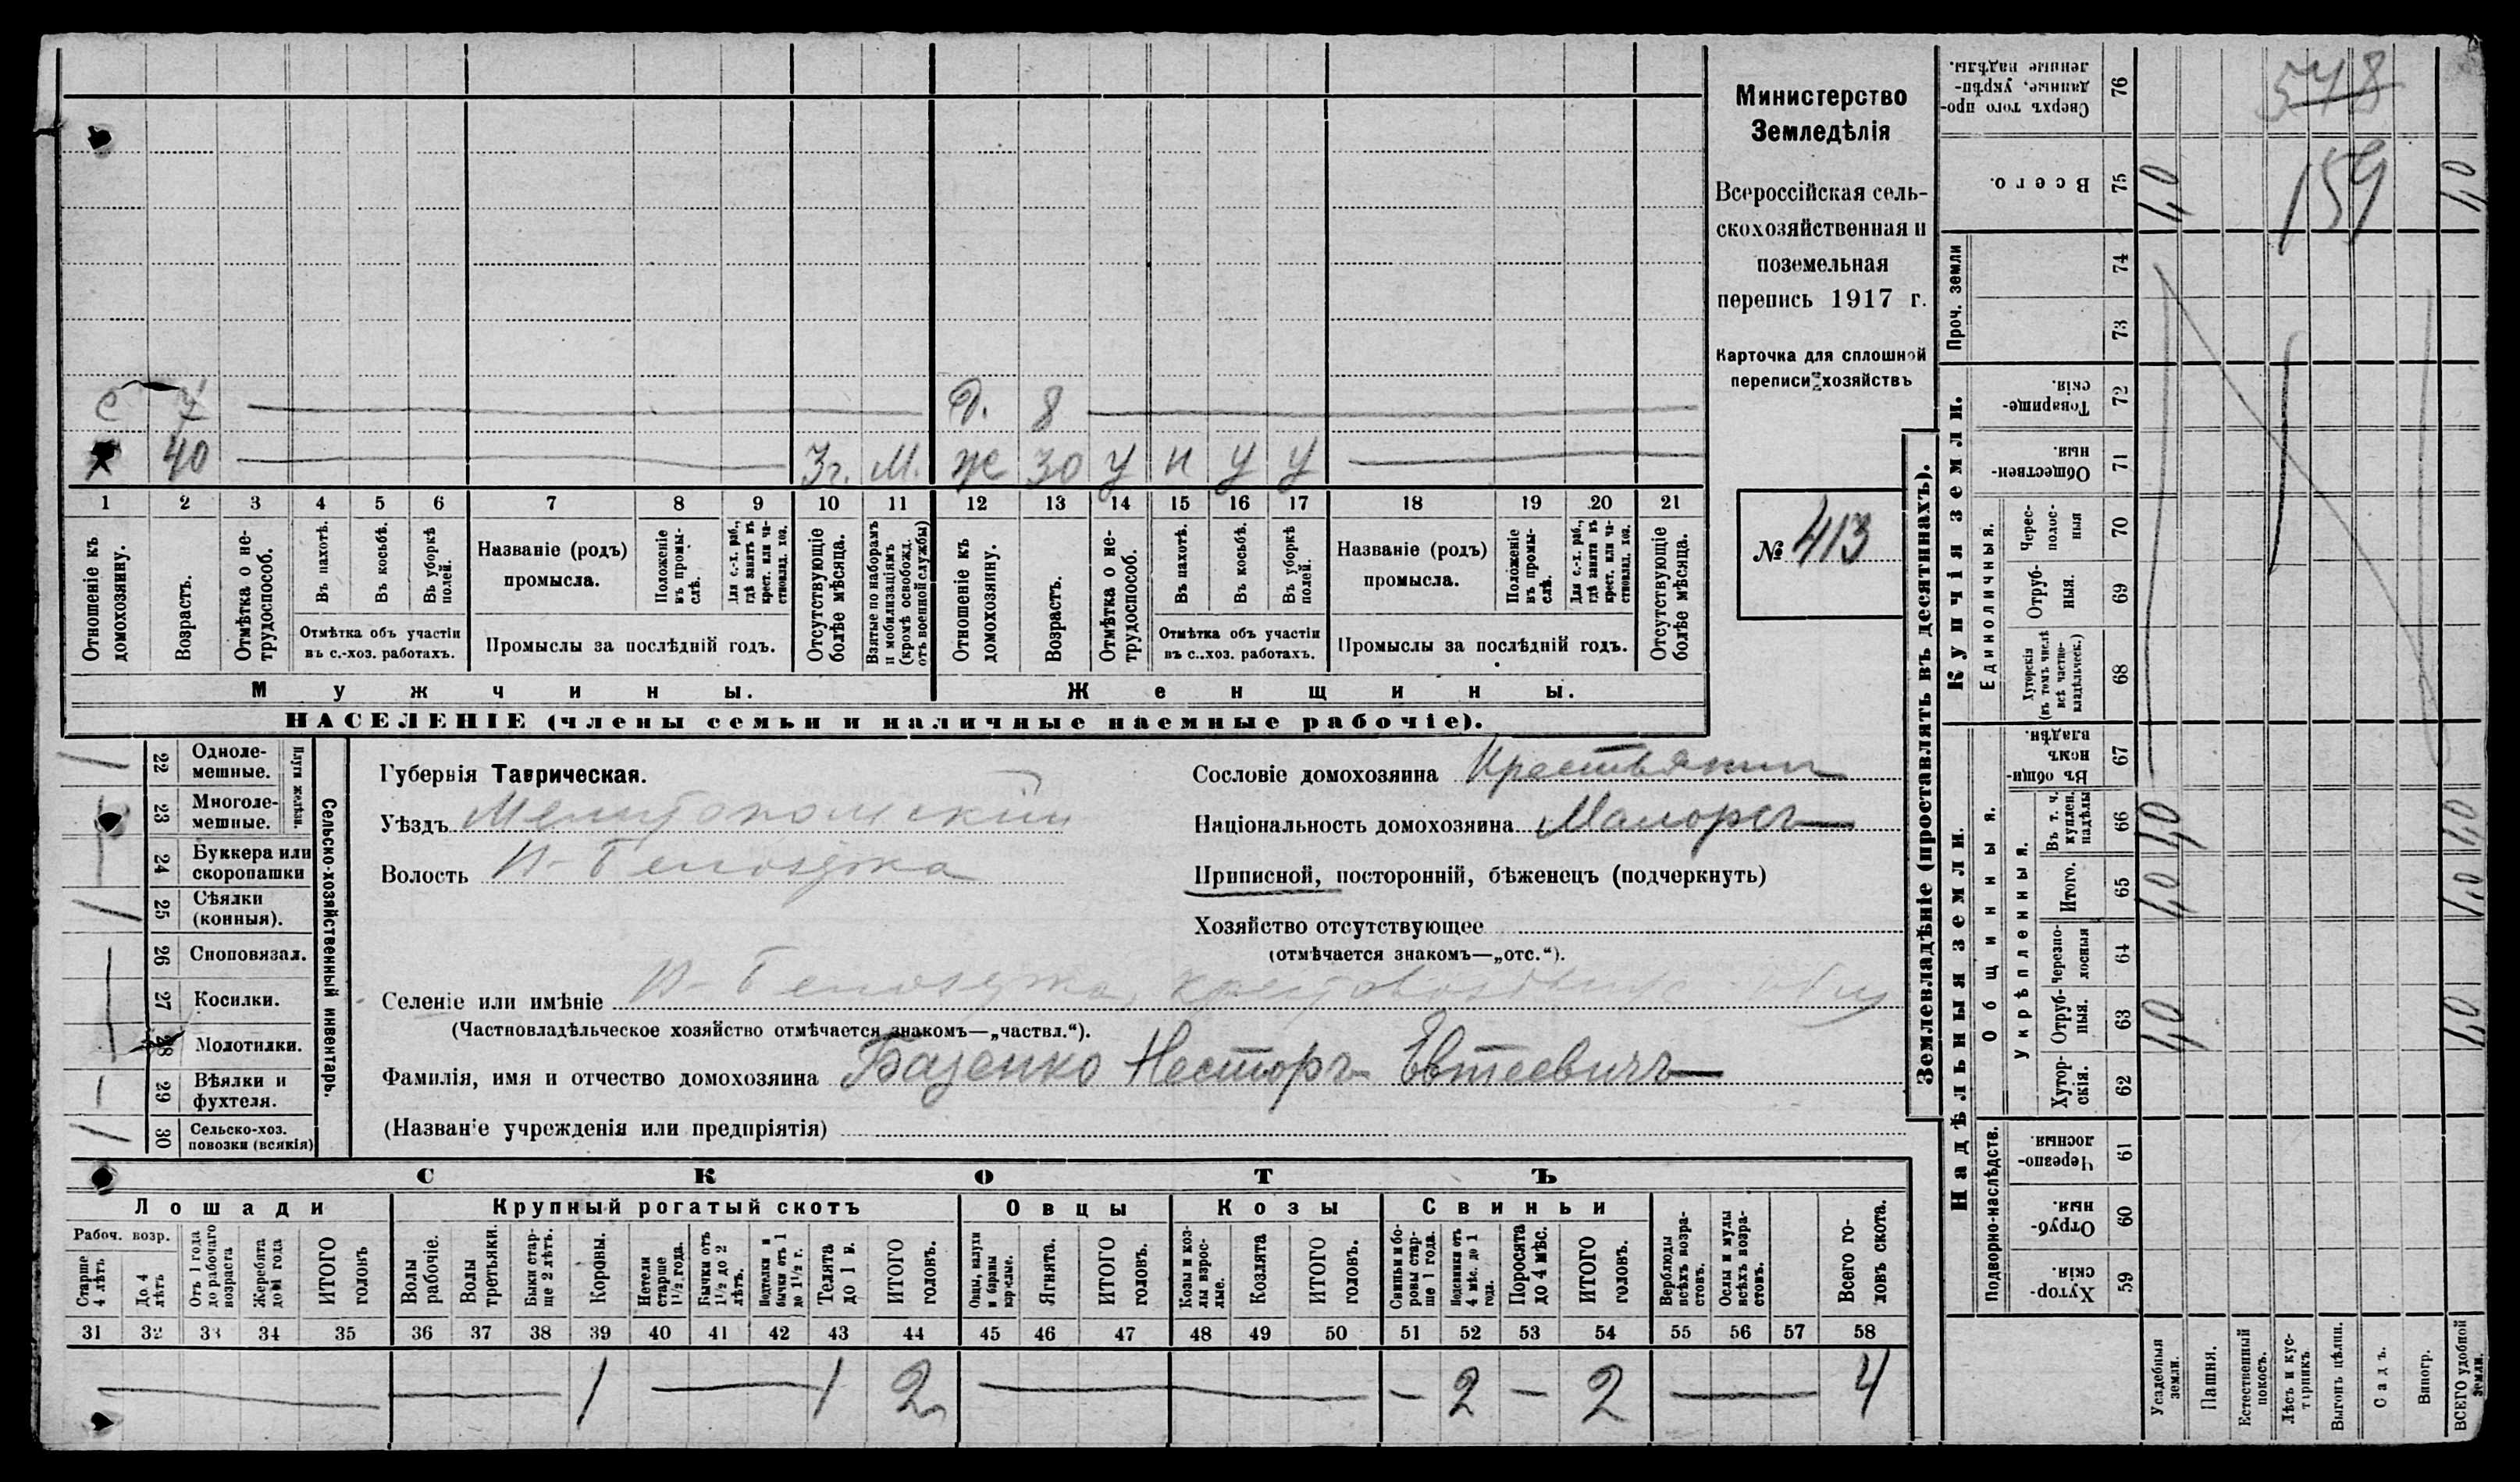 Министерство
Земледѣлія
Всероссійская сель-
скохозяйственная и
поземельная
перепись 1917 г.
Карточка для сплошной
переписи хозяйствъ
№ 413
с 7 Д. 8
Х 40 3г. М. Ж 30 У п У У
1 2 3 4 5 6 7 8 9 10 11 12 13 14 15 16 17 18 19 20 21
Отношеніе къ домохозяину.
Возрастъ.
Отмѣтка о не-трудоспособ.
Въ пахотѣ.
Въ косьбѣ.
Въ уборкѣ полей.
Отмѣтка объ участіи
въ с.-хоз. работахъ.
Названіе (родъ)
промысла.
Положеніе въ промы-слѣ.
Для с.-х. раб., гдѣ занятъ въ крест. или ча-стновлад. хоз.
Промыслы за послѣдній годъ.
Отсутствующіе болѣе мѣсяца.
Взятые по наборамъ и мобилизаціямъ (кромѣ освобожд. отъ военной службы)
Отношеніе къ домохозяину.
Возрастъ.
Отмѣтка о не-трудоспособ.
Въ пахотѣ.
Въ косьбѣ.
Въ уборкѣ полей.
Отмѣтка объ участіи
въ с..хоз. работахъ.
Названіе (родъ)
промысла.
Положеніе въ промы-слѣ.
Для с.-х. раб., гдѣ занята въ крест. или ча-стновлад. хоз.
Промыслы за послѣдній годъ.
Отсутствующіе болѣе мѣсяца.
Мужчины. Женщины.
НАСЕЛЕНІЕ (члены семьи и наличные наемные рабочіе).
Сельско-хозяйственный инвентарь.
Плуги желѣзн.
22 Одноле-мешные. 1
23 Многоле-мешные.
24 Буккера или скоропашки
25 Сѣялки (конныя). 1
26 Сноповязал.
27 Косилки.
28 Молотилки.
29 Вѣялки и фухтеля. 1
30 Сельско-хоз. повозки (всякія) 1
Губернія Таврическая.
Уѣздъ Мелитопольскій
Волость Н-Белозерка
Селеніе или имѣніе Н-Белозерка,
(Частновладѣльческое хозяйство отмѣчается знакомъ—„частвл.“).
Фамилія, имя и отчество домохозяина Базенко Несторъ Евтеевичъ
(Названіе учрежденія или предпріятія)
Сословіе домохозяина Крестьянин
Національность домохозяина Малорсъ
Приписной, посторонній, бѣженецъ (подчеркнуть)
Хозяйство отсутствующее
(отмѣчается знакомъ—„отс.“).
СКОТЪ
Лошади Крупный рогатый скотъ Овцы Козы Свиньи
Рабоч. возр.
Старше 4 лѣтъ
До 4 лѣтъ
Отъ 1 года до рабочаго возраста
Жеребята до 1 года
ИТОГО головъ
Волы рабочіе.
Волы третьяки.
Быки стар-ше 2 лѣтъ.
Коровы.
Нетели старше 1½ года.
Бычки отъ 1½ до 2 лѣтъ.
Подтелки и бычки отъ 1 до 1½ г.
Телята до 1 г.
ИТОГО головъ.
Овцы, валухи и бараны взрослые.
Ягнята.
ИТОГО головъ.
Козы и коз-лы взрос-лые.
Козлята
ИТОГО головъ.
Свиньи и бо-ровы стар-ше 1 года.
Подсвинки отъ 4 мѣс. до 1 года.
Поросята до 4 мѣс.
ИТОГО головъ.
Верблюды всѣхъ возра-стовъ.
Ослы и мулы всѣхъ возра-стовъ.
Всего го-ловъ скота.
31 32 33 34 35 36 37 38 39 40 41 42 43 44 45 46 47 48 49 50 51 52 53 54 55 56 57 58
1 1 2 2 2 4
Землевладѣніе (проставлять въ десятинахъ).
548
159
76 Сверхъ того про-данные, укрѣп-ленные надѣлы.
75 Всего. 1,0 1,0
Проч. земли
74
73
Купчія земли.
72 Товарище-скія.
71 Обществен-ныя.
Единоличныя.
70 Черес-полос-ныя
69 Отруб-ныя.
68 Хуторскія (въ томъ числѣ всѣ частно-владѣльческ.)
Надѣльныя земли.
Общинныя.
67 Въ общи-номъ владѣн.
Укрѣпленныя.
66 Въ т. ч. куплен. надѣлы 1,0 1,0
65 Итого. 1,0 1,0
64 Черезпо-лосныя
63 Отруб-ныя. 1,0 1,0
62 Хутор-скія.
Подворно-наслѣдств.
61 Черезпо-лосныя.
60 Отруб-ныя.
59 Хутор-скія.
Усадебныя земли.
Пашня.
Естественный покосъ.
Лѣсъ и кус-тарникъ.
Выгонъ цѣлин.
Садъ.
Виногр.
ВСЕГО удобной земли.